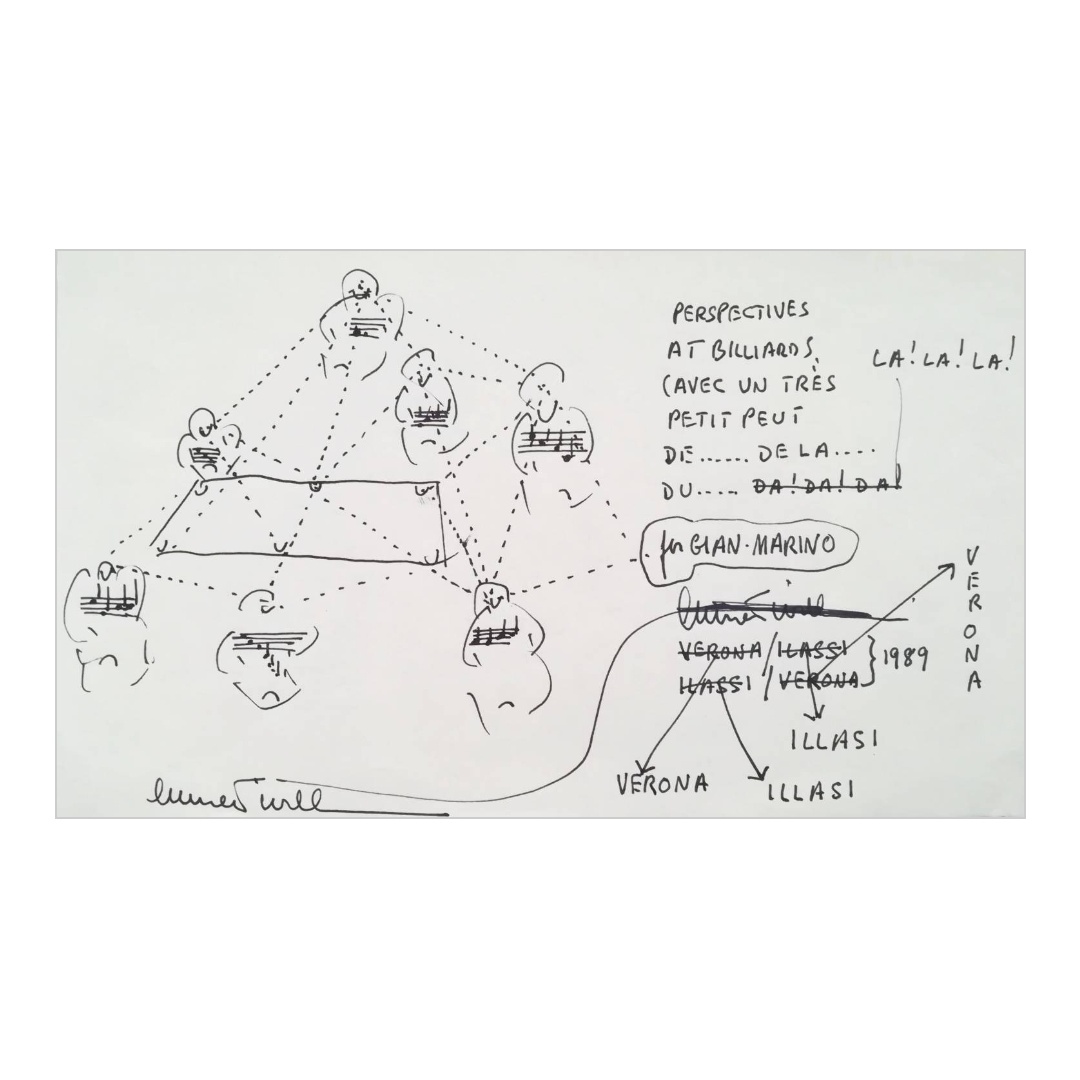 PERSPECTIVES
AT BILLIARDS,
LA! LA! LA!
(AVEC UN TRÈS
PETIT PEUT
DE...... DE LA....
DU..... DA! DA! DA!
for GIAN-MARINO
VERONA / ILASSI
ILASSI / VERONA } 1989
VERONA
ILLASI
VERONA
ILLASI